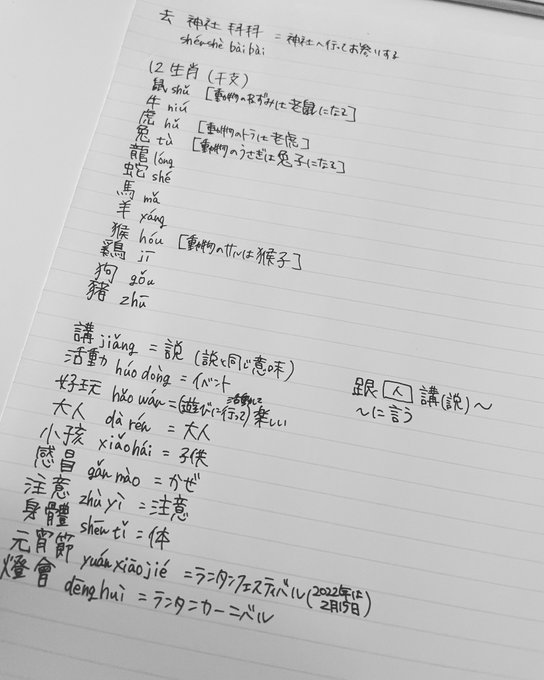 去 神社 拜拜 = 神社へ行ってお参りする
shénshè bàibài
12生肖 (干支)
鼠 shǔ [動物のねずみは老鼠になる]
牛 niú
虎 hǔ [動物のトラは老虎]
兔 tù [動物のうさぎは兔子になる]
龍 lóng
蛇 shé
馬 mǎ
羊 xáng
猴 hóu [動物のサルは猴子]
鷄 jī
狗 gǒu
豬 zhū
講 jiǎng = 説 (説と同じ意味)
活動 húo dòng = イベント
好玩 hǎo wán = (遊びに行って) 活動して 楽しい
大人 dà rén = 大人
小孩 xiǎo hái = 子供
感冒 gǎn mào = かぜ
注意 zhù yì = 注意
身體 shēn tǐ = 体
元宵節 yuán xiāo jié = ランタンフェスティバル (2022年は2月15日)
燈會 dēng huì = ランタンカーニバル
跟 人 講(説)～
～に言う